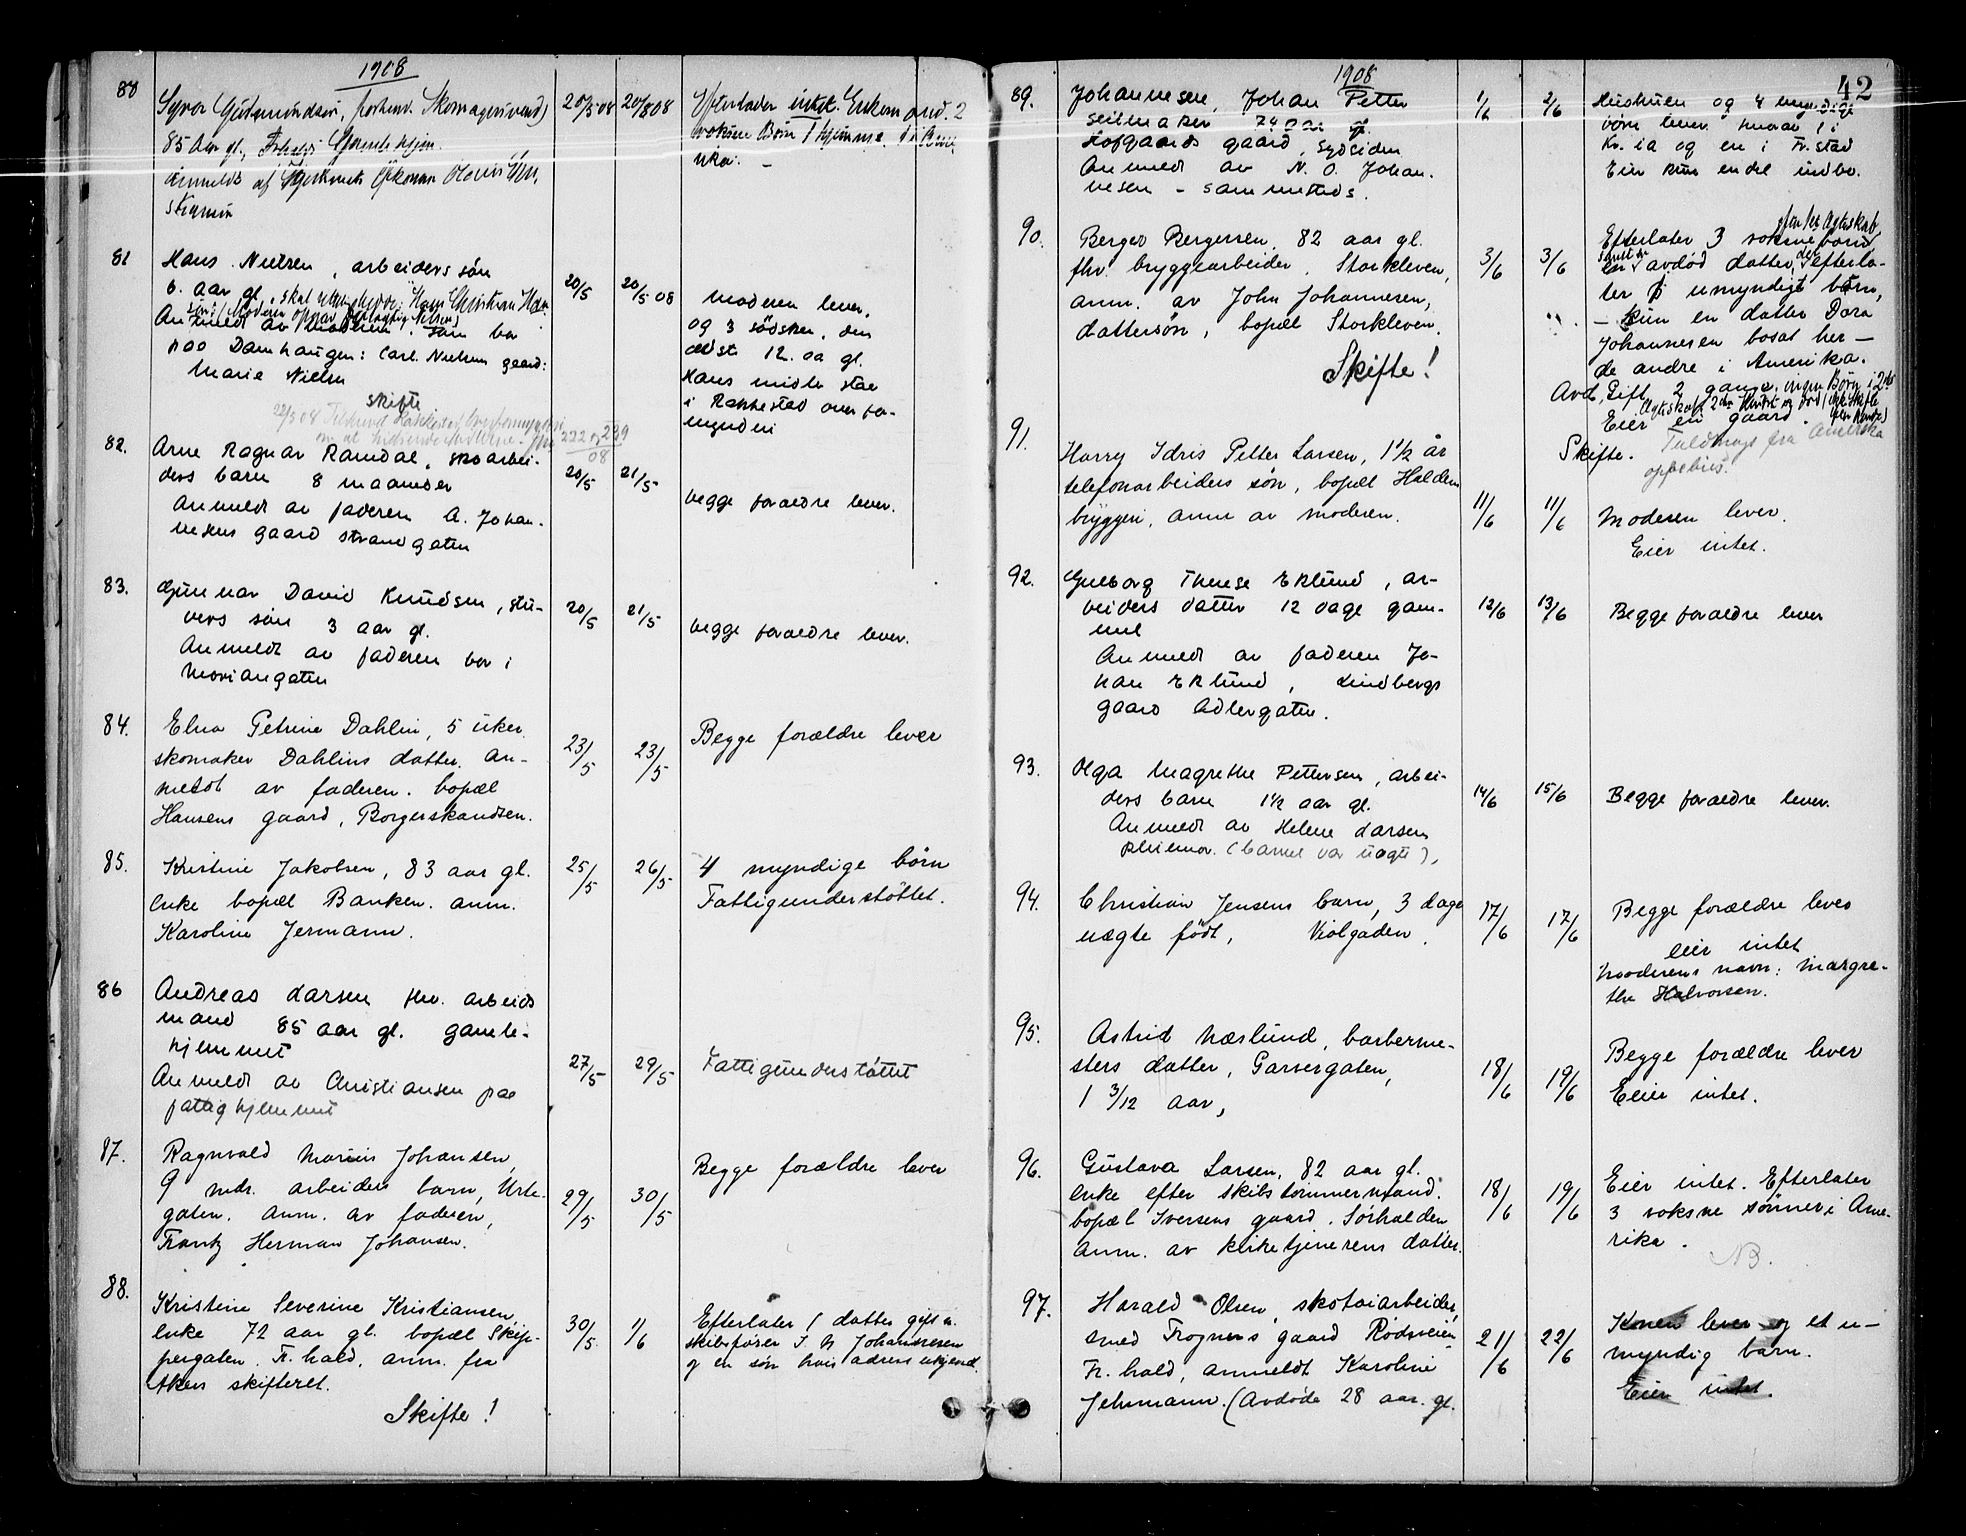 1908
80 Syver Gudmundsen, forhenv. Skomagersvend) 20/5 08 20/5 08 Efterlader intet. Enkem and. 2
85 Aar gl., Frhalds Gamlehjem. voksne Børn 1 hjemme
anmeldt af
rika. –
81 Hans Nielsen, arbeiders søn 20/5 20/5 08
6. aar gl. skal rettelig hedde: Hans Christian Han-
sen (Moderen
Anmeldt av moderen som bor
paa Damhaugen: Carl Nielsens gaard:
Marie Nielsen
moderen lever,
og 3 södsken, den
ældste 12. aa gl.
Hans midler staar
i Rakkestad over for-
mynderi
Skifte
22/5 08
82. Arne Ragnar Ramdal, skoarbei- 20/5 21/5
ders barn 8 maaneder
Anmeldt av faderen A. Johan-
nesens gaard strandgaten
begge foraeldre lever.
83. Gunnar David Knudsen, stu- 20/5 21/5
vers søn 3 aar gl.
Anmeldt av faderen bor i
Moriangaten
begge foraeldre lever.
84. Elna Petrine Dahlin, 5 uker. 23/5 23/5 Begge forældre lever
skomaker Dahlins datter. An-
meldt av faderen. bopæl
Hansens gaard, Borgerskandsen.
85. Kristine Jakobsen, 83 aar gl. 25/5 26/5 4 myndige børn
enke bopæl Banken. anm. Fattigunderstöttet.
Karoline Jermann.
86 Andreas Larsen fhv. arbeids
mand 85 aar gl. gamle-
hjemmet 27/5 29/5 Fattigunderstöttet
Anmeldt av Christiansen paa
fattighjemmet
87. Ragnvald Marius Johansen, Begge forældre lever
9 mdr. arbeiders barn, Urte- 29/5 30/5
gaten. Anm. av faderen,
Frantz Herman Johansen.
88. Kristine Severine Kristiansen, 30/5 1/6 Efterlater 1 datter gift m.
enke 72 aar gl. bopæl Skip- skibsfører I. N Johannesen
pergaten. Fr.hald, anm. fra og en søn hvis adress ukjend.
Aker skifteret.
Skifte!
42
1908
89. Johannesen, Johan Petter 1/6 2/6 Hustruen og 4 myndige
seilmaker 74 aar gl. børn lever hvorav 1 i
Hofgaards gaard, Sydsiden Kr.ia og en i Fr.stad
Anmeldt av N. O. Johan- Eier kun endel indbo.
nesen – sammesteds.
90. Berger Bergersen, 82 aar gl. 3/6 3/6
fhv. bryggearbeider. Storkleven,
anm. av John Johannesen,
dattersøn, bopæl Storkleven.
Skifte!
Efterlater 3 voksne barn
samt en avdød datter, der efterla-
ter umyndige børn,
– kun en datter Dora
Johannesen bosat her –
de andre i Amerika.
Avd. Gift 2 gange. ingen Børn i 2det
Eier en gaard.
Skifte.
91. Harry Idris Petter Larsen, 1½ år
telefonarbeiders søn, bopæl Halden
bryggeri, anm av moderen. 11/6 11/6 Moderen lever.
Eier intet.
92. Gulborg Therese Eklund, ar-
beiders datter 12 dage gam- 12/6 13/6 Begge foraeldre lever
mel
Anmeldt av faderen Jo-
han Eklund, Lindbergs
gaard Adlergaten.
93. Olga Magrethe Pettersen, arbei-
ders barn 1½ aar gl. 14/6 15/6 Begge foraeldre lever.
Anmeldt av Helene Larsen
pleiemor. (barnet var uægte).
94. Christian Jensens barn, 3 dage 17/6 17/6 Begge forældre lever
uægte født, Violgaden. eier intet
Moderens navn: Margre-
the Halvorsen.
95. Astrid Næslund, barberme-
sters datter, Garvergaten, 18/6 19/6 Begge forældre lever
1 3/12 aar, Eier intet.
96. Gustava Larsen, 82 aar gl.
enke efter skibstømmermand. 18/6 19/6 Eier intet. Efterlater
bopæl Iversens gaard. Sørhalden 3 voksne sønner i Ame-
anm. av kirketjenerens datter. rika.
NB.
97. Harald Olsen, skotøiarbeider,
smed Trogners gaard Rødsveien 21/6 22/6 Konen lever og et u-
Fr.hald, anmeldt Karoline myndig barn.
Jehrmann. (Avdøde 28 aar. gl. Eier intet.